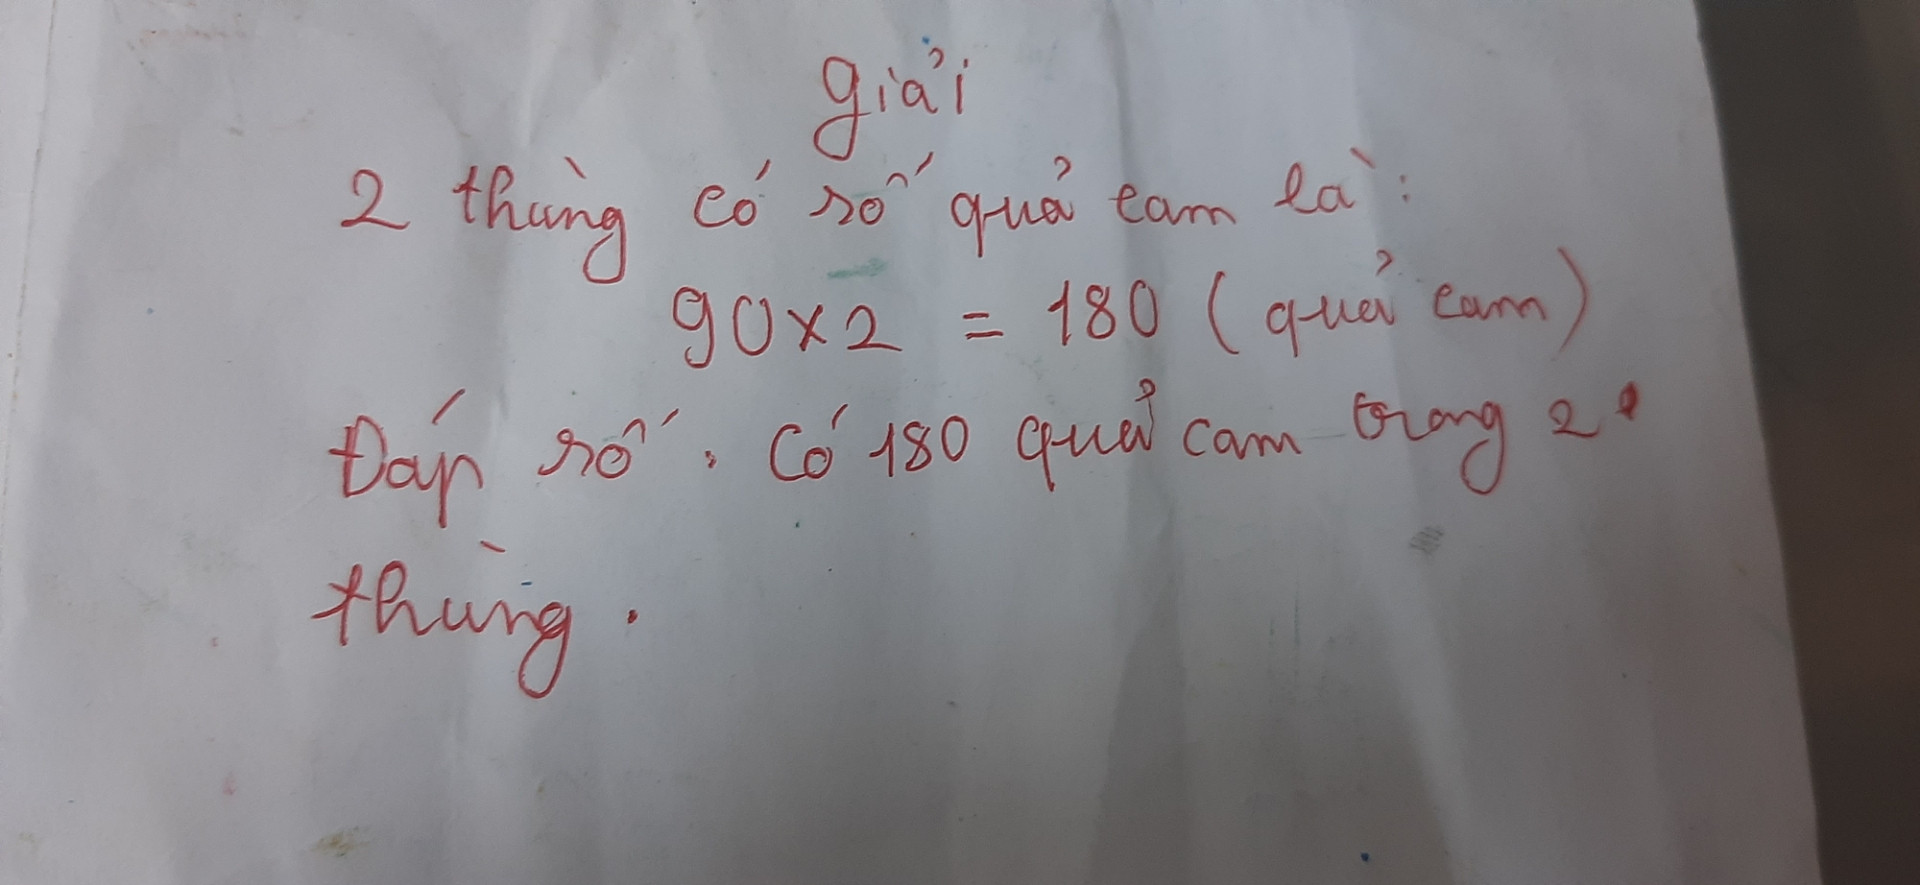 Giải
2 thùng có số quả cam là:
90x2 = 180 (quả cam)
Đáp số. Có 180 quả cam trong 2
thùng.